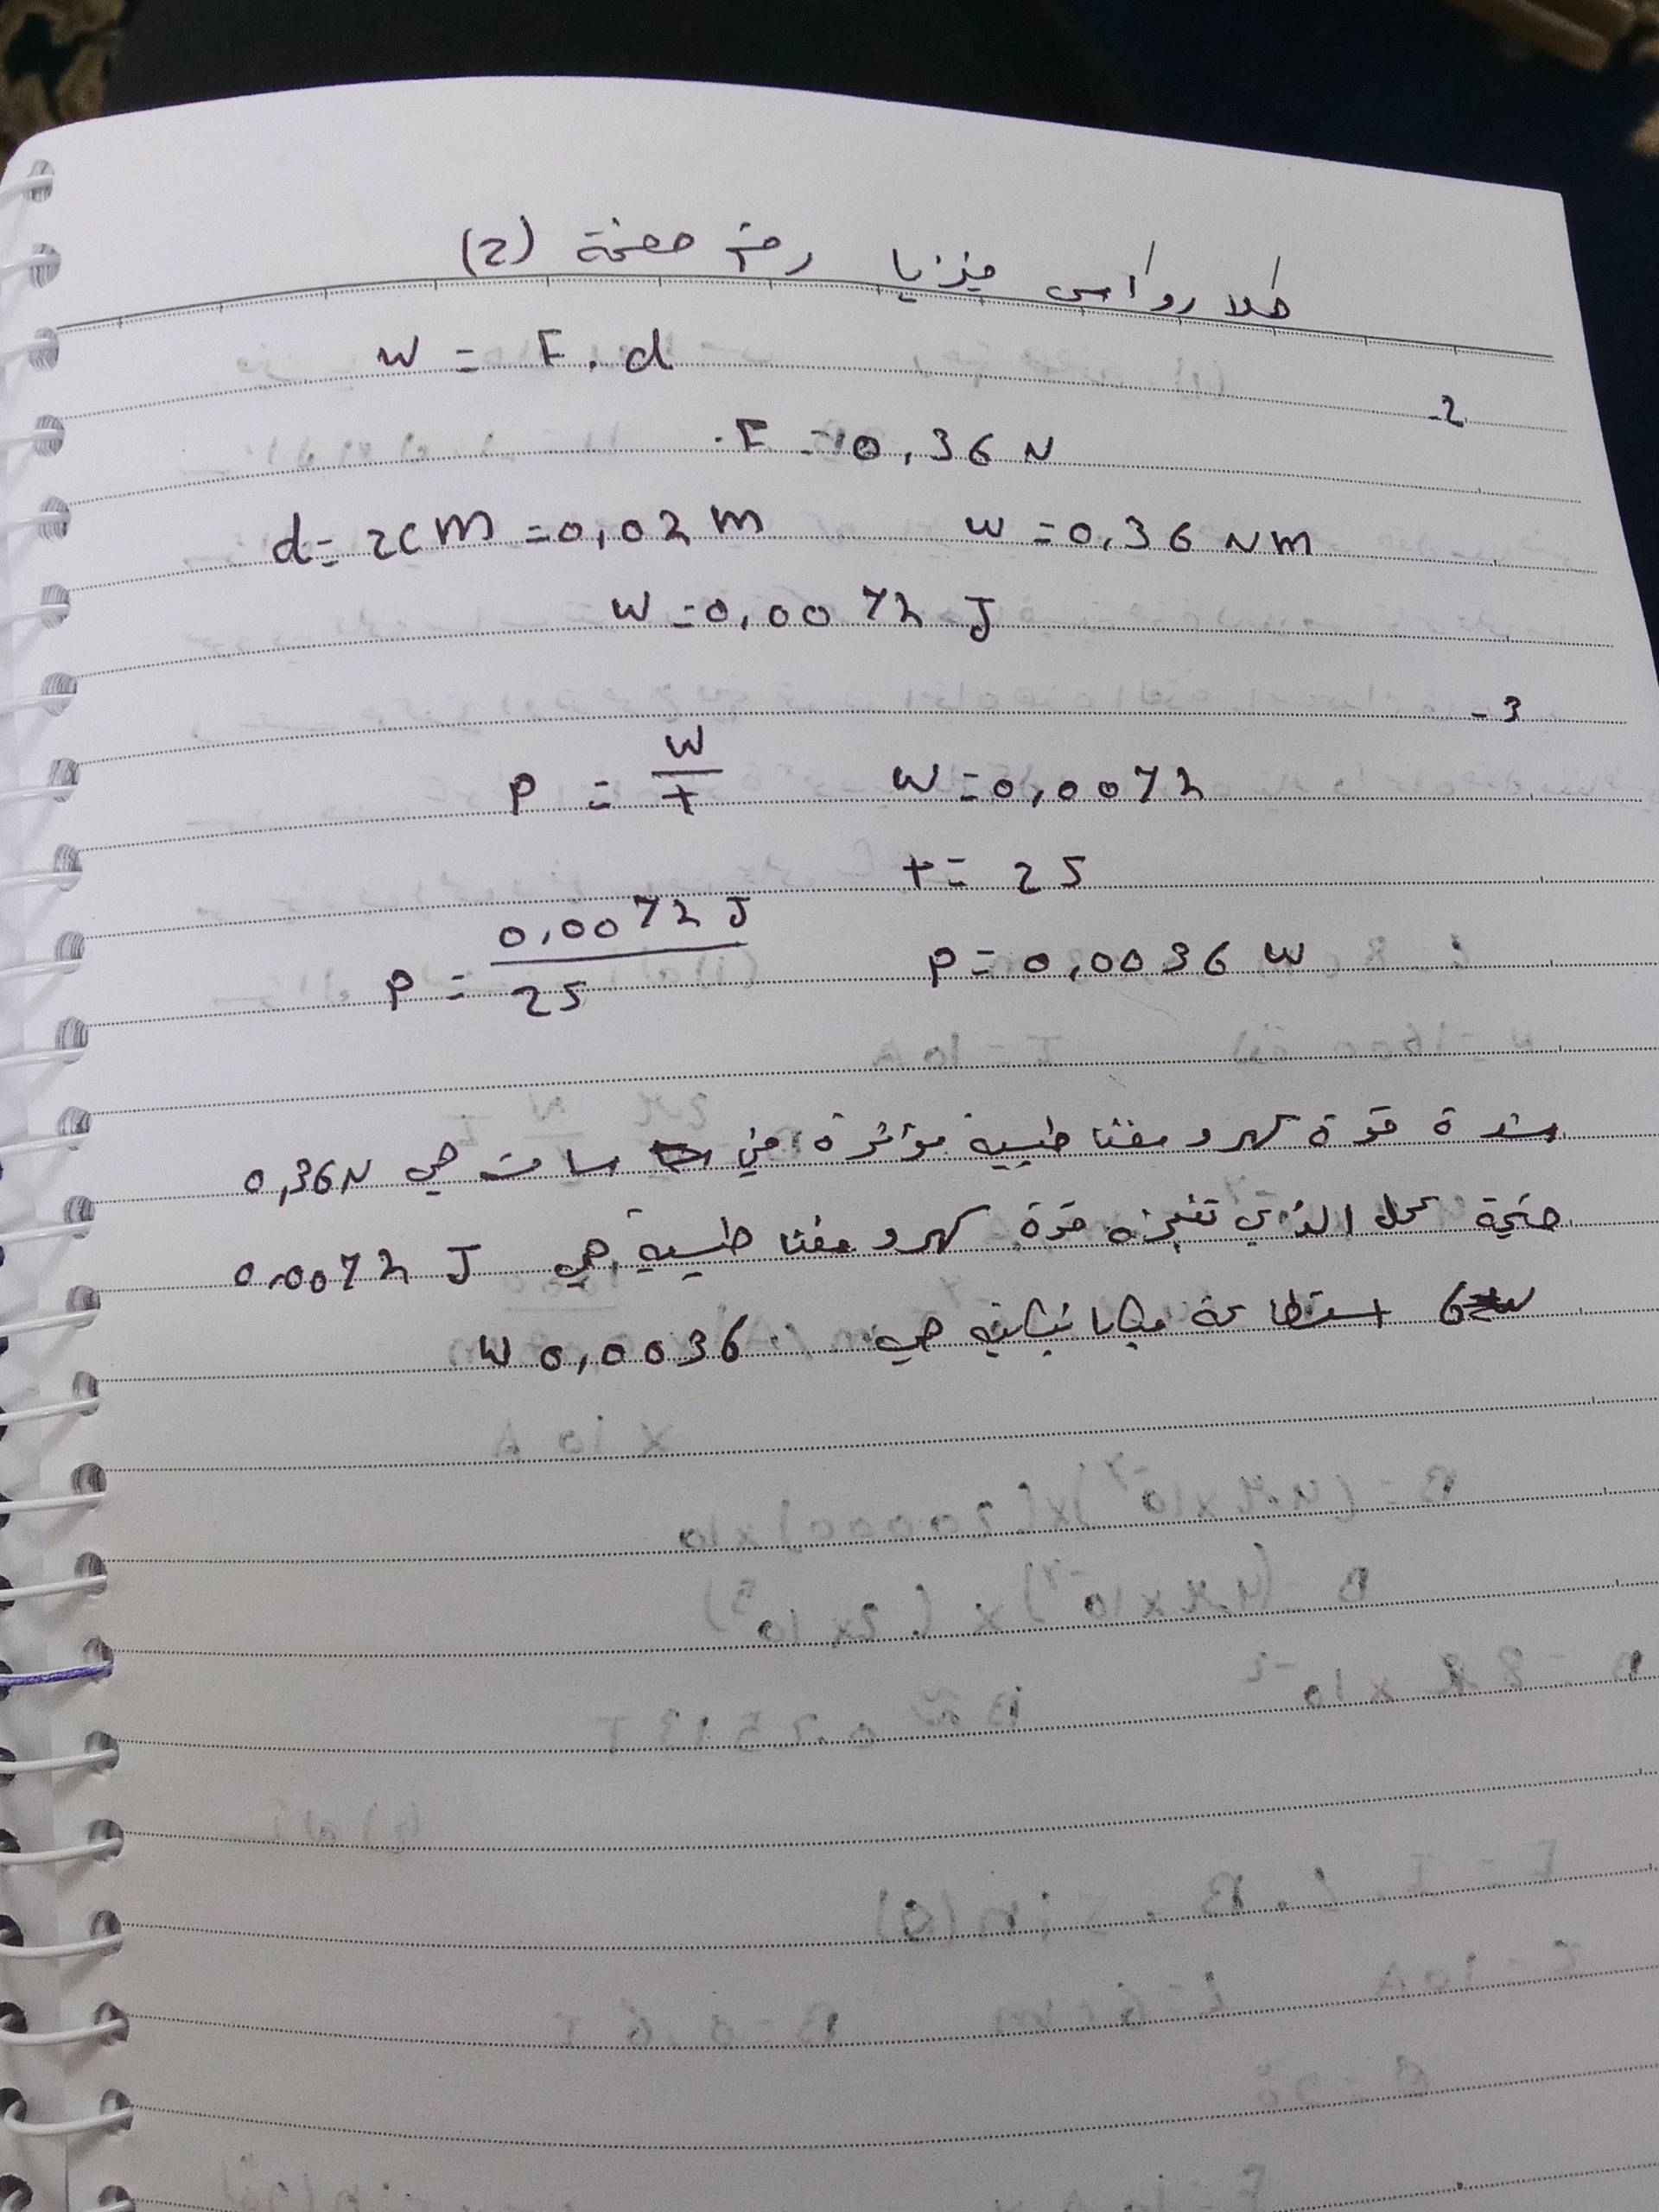 فيزيا رقم صفحة (2)
W = F . d
-2
F = 0,36 N
d = 2cm = 0,02 m    W = 0,36 Nm
W = 0,0072 J
-3
P = W/t    W = 0,0072
t = 2s
P = 0,0072 J / 2s    P = 0,0036 W
شدة قوة كهرومغناطيسية مؤثرة في ساق هي 0,36N
قيمة عمل الذي تنجزه قوة كهرومغناطيسية هي 0.0072 J
استطاعة ميكانيكية هي 0,0036 W